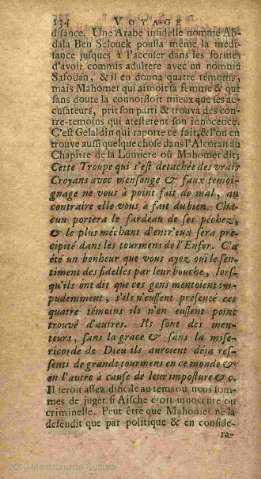 234 VOYAGE
disance. Une Arabe infidelle nommé Ab-
dala Ben Selouek poussa même la médi-
sance jusques à l'acuser dans les formes
d'avoir commis adultere avec un nommé
Safouan, & il en donna quatre témoins,
mais Mahomet qui aimoit sa femme & qui
sans doute la connoissoit mieux que ses ac-
cusateurs, prit son parti & trouva des con-
tre-temoins qui atesterent son innocence.
C'est Gelaldin qui raporte ce fait, & l'on en
trouve aussi quelque chose dans l'Alcoran au
Chapitre de la Lumiere où Mahomet dit;
Cette Troupe qui s'est detachée des vrais
Croyans avec mensonge & faux temoi-
gnage ne vous a point fait de mal, au
contraire elle vous a fait du bien. Cha-
cun portera le fardeau de ses pechez,
& le plus méchant d'entr'eux sera pre-
cipité dans les tourmens de l'Enfer. C'a
été un bonheur que vous ayez oui le sen-
timent des fidelles par leur bouche, lors-
qu'ils ont dit que ces gens mentoient im-
pudemment, s'ils n'eussent présenté ces
quatre témoins ils n'en eussent point
trouvé d'autres. Ils sont des men-
teurs, sans la grace & sans la mise-
ricorde de Dieu ils auroient déja res-
senti de grands tourmens en ce monde &
en l'autre à cause de leur imposture &c.
Il seroit assez dificile au tems où nous som-
mes de juger si Aische étoit innocente ou
criminelle. Peut être que Mahomet ne la
defendit que par politique & en conside-
ra-